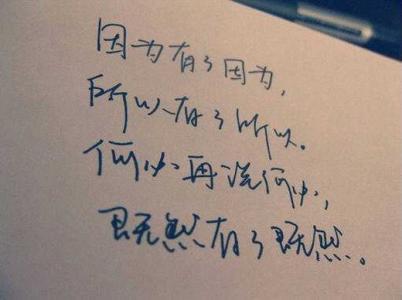 因为有了因为，
所以有了所以。
何必再说何必，
既然有了既然。